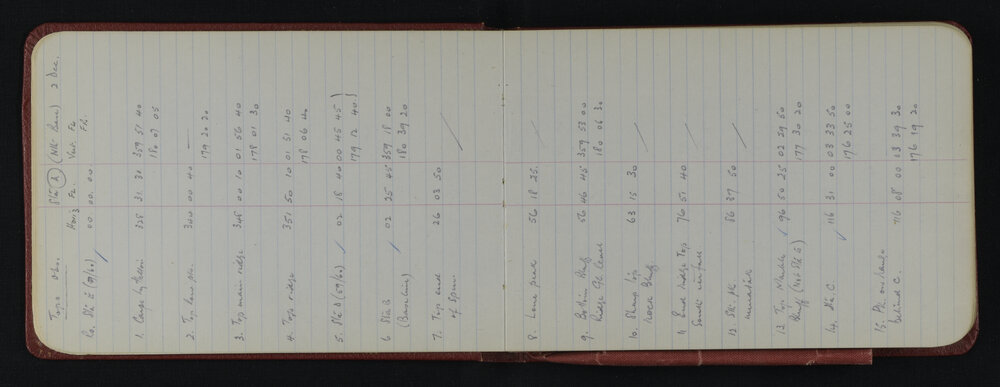 Topo obs. Stn (A) (Nth Base) 2 Dec.
Horiz FL. Vert. FL FR.
Ro. Stn E (59/60) 00 00 00
1. 328 31 30 359 51 40
180 07 05
2. Top low pk. 300 00 40 —
179 20 20
3. Top main ridge 348 00 10 01 56 40
178 01 30
4. Top ridge 351 50 10 01 51 40
178 06 40
5. Stn D (59/60) 02 18 40 00 45 45
179 12 40
6 Stn B 02 25 45 359 18 00
(Baseline) 180 39 20
7. Top end 26 03 50
of Spur.
8. Lone peak 56 18 25.
9. Bottom Bluff 56 46 45 359 53 00
Ridge Gl. level 180 06 30
10. Sharp top 63 15 30
rock Bluff.
11. Snow ridge Top 76 51 40
South icefall
12. Stn. pk 86 37 50
nunatak
13. Top Nunatak 96 50 25 02 29 50
Bluff (Not Stn G) 177 30 20
14. Stn C 116 31 00 03 33 50
176 25 00
15. Pk on land 116 08 00 03 39 30
behind C. 176 19 20